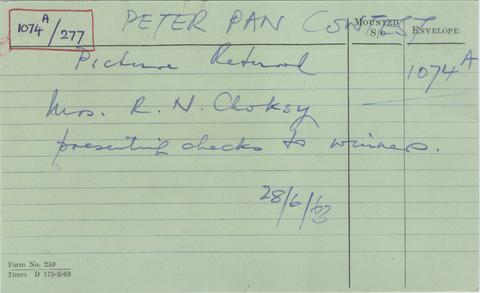 1074A/277
PETER PAN CONTEST
MOUNTED S/C
ENVELOPE
Picture Returned
1074A
Mrs. R. N. Choksy
presenting checks to winners.
28/6/63
Form No. 259
Times D 175-2-63